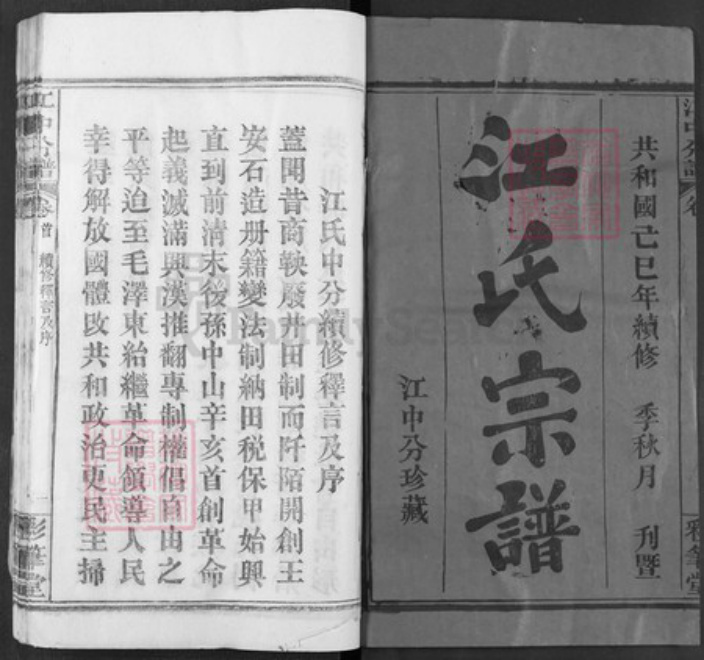 共和國己巳年續修 季秋月 刊暨
江氏宗譜
江中分珍藏
江氏中分續修釋言及序
蓋聞昔商鞅廢井田制而阡陌開創王
安石造册籍變法制納田税保甲始興
直到前清末後孫中山辛亥首創革命
起義滅滿興漢推翻專制權倡自由之
平等迨至毛澤東紿繼革命領導人民
幸得解放國體改共和政治更民主掃
江中分譜 卷首 續修釋言及序 一 彩筆堂